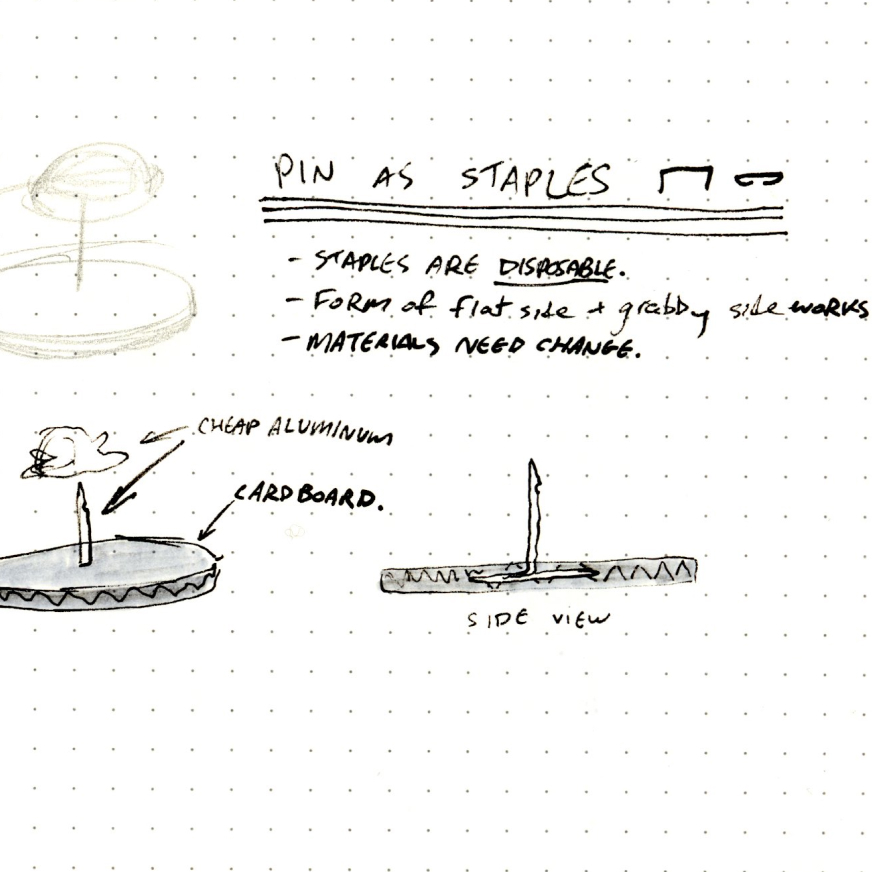 PIN AS STAPLES
- STAPLES ARE DISPOSABLE.
- FORM of flat side + grabby side WORKS
- MATERIALS NEED CHANGE.
CHEAP ALUMINUM
CARDBOARD.
SIDE VIEW